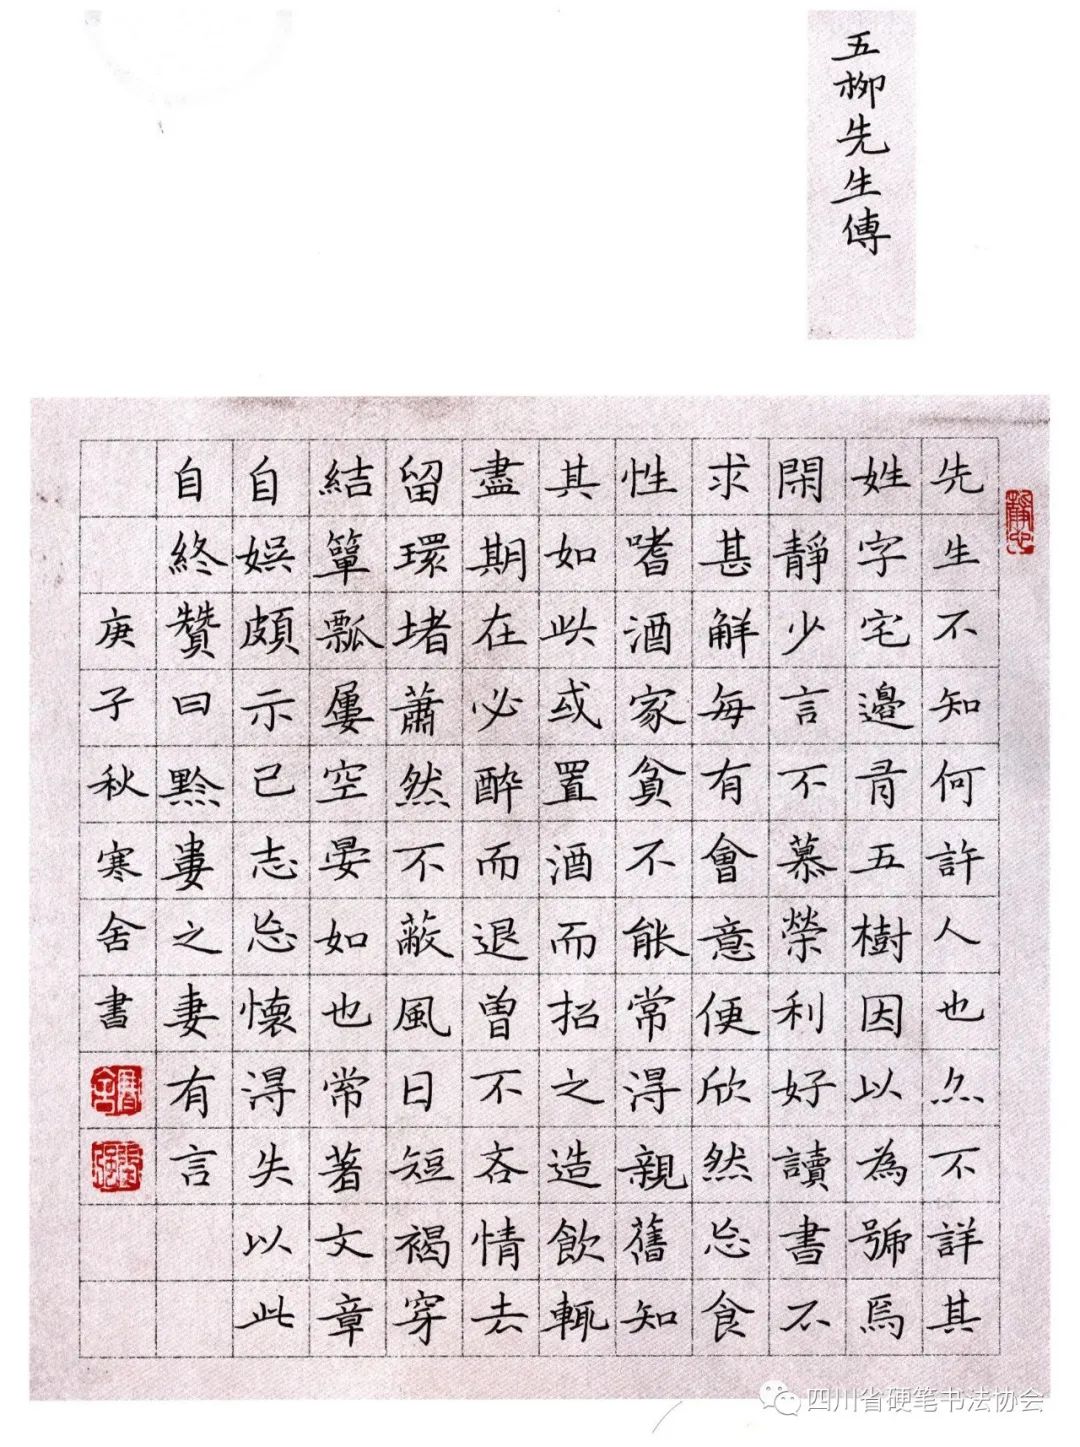 五柳先生傳
先生不知何許人也亦不詳其
姓字宅邊有五樹因以為號焉
閑靜少言不慕榮利好讀書不
求甚解每有會意便欣然忘食
性嗜酒家貧不能常得親舊知
其如此或置酒而招之造飲輒
盡期在必醉而退曾不吝情去
留環堵蕭然不蔽風日短褐穿
結簞瓢屢空晏如也常著文章
自娛頗示己志忘懷得失以此
自終贊曰黔婁之妻有言
庚子秋寒舍書
四川省硬笔书法协会